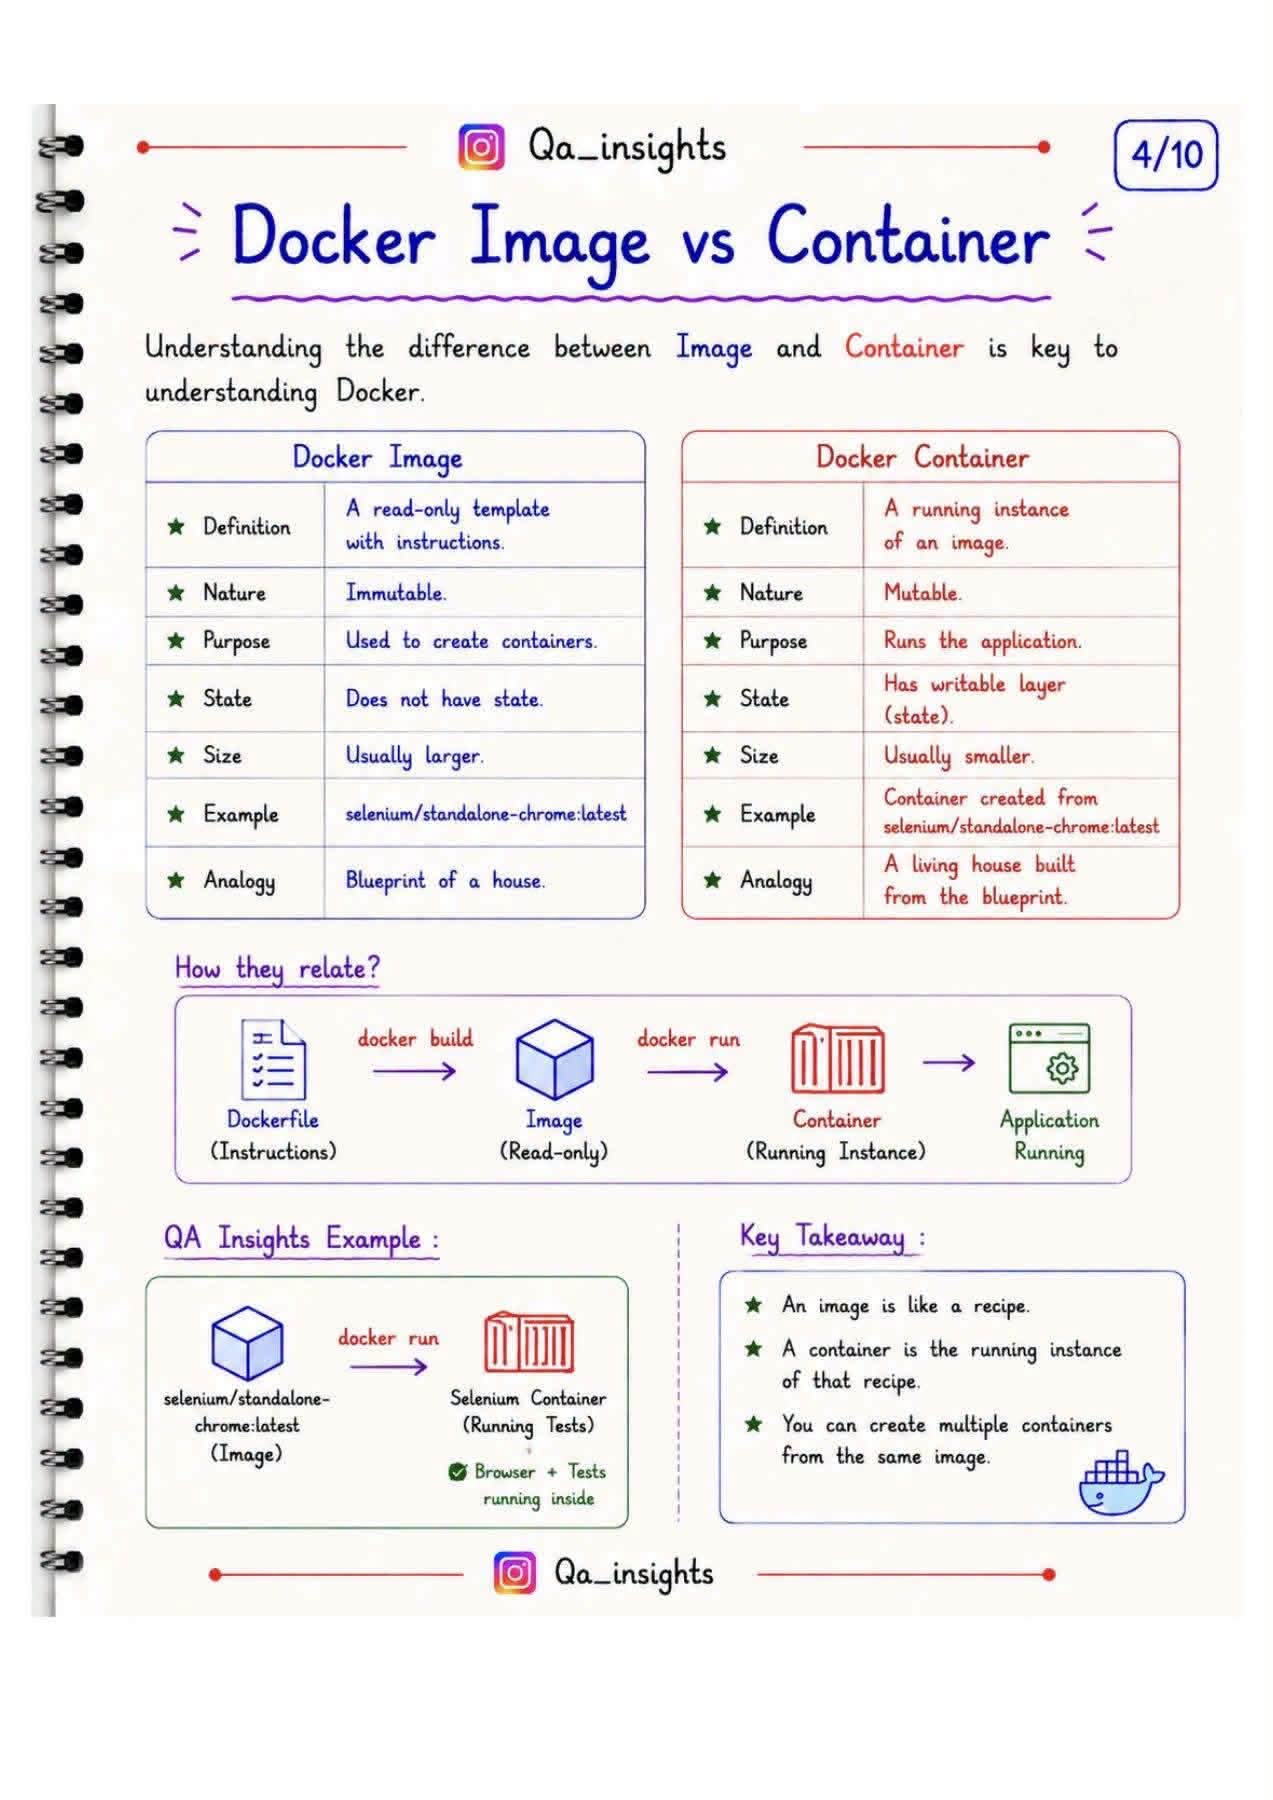 Qa_insights
4/10
Docker Image vs Container
Understanding the difference between Image and Container is key to
understanding Docker.
Docker Image
★ Definition
A read-only template
with instructions.
★ Nature
Immutable.
★ Purpose
Used to create containers.
★ State
Does not have state.
★ Size
Usually larger.
★ Example
selenium/standalone-chrome:latest
★ Analogy
Blueprint of a house.
Docker Container
★ Definition
A running instance
of an image.
★ Nature
Mutable.
★ Purpose
Runs the application.
★ State
Has writable layer
(state).
★ Size
Usually smaller.
★ Example
Container created from
selenium/standalone-chrome:latest
★ Analogy
A living house built
from the blueprint.
How they relate?
Dockerfile
(Instructions)
docker build
Image
(Read-only)
docker run
Container
(Running Instance)
Application
Running
QA Insights Example :
selenium/standalone-
chrome:latest
(Image)
docker run
Selenium Container
(Running Tests)
Browser + Tests
running inside
Key Takeaway :
★ An image is like a recipe.
★ A container is the running instance
of that recipe.
★ You can create multiple containers
from the same image.
Qa_insights